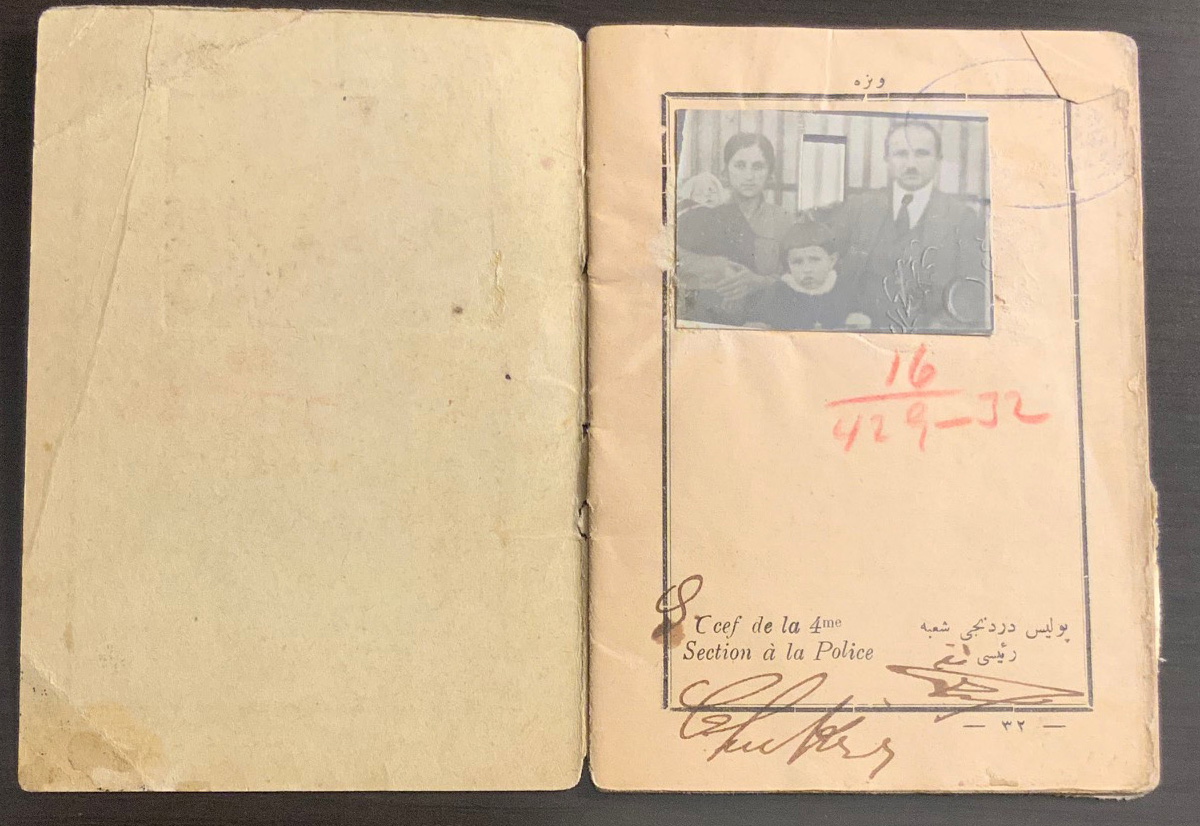 ويزه
16
429-32
Ccef de la 4me
Section à la Police
پوليس دردنجى شعبه
رئيسى
— ٣٢ —